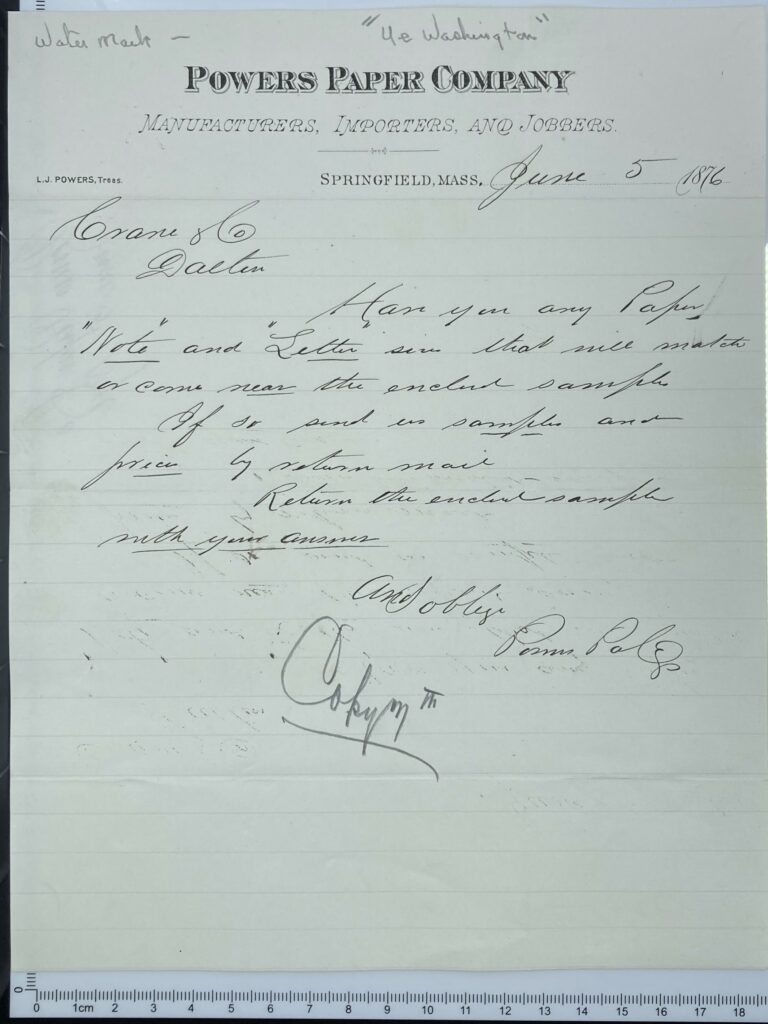 Water Mark — "Ye Washington"
POWERS PAPER COMPANY
MANUFACTURERS, IMPORTERS, AND JOBBERS.
L.J. POWERS, Treas.
SPRINGFIELD, MASS. June 5 1876
Crane & Co
Dalton
Have you any Paper
"Note" and "Letter" size that will match
or come near the enclosed sample
If so send us samples and
prices by return mail
Return the enclosed sample
with your answer
And oblige
Powers Pa Co
0 1cm 2 3 4 5 6 7 8 9 10 11 12 13 14 15 16 17 18
0